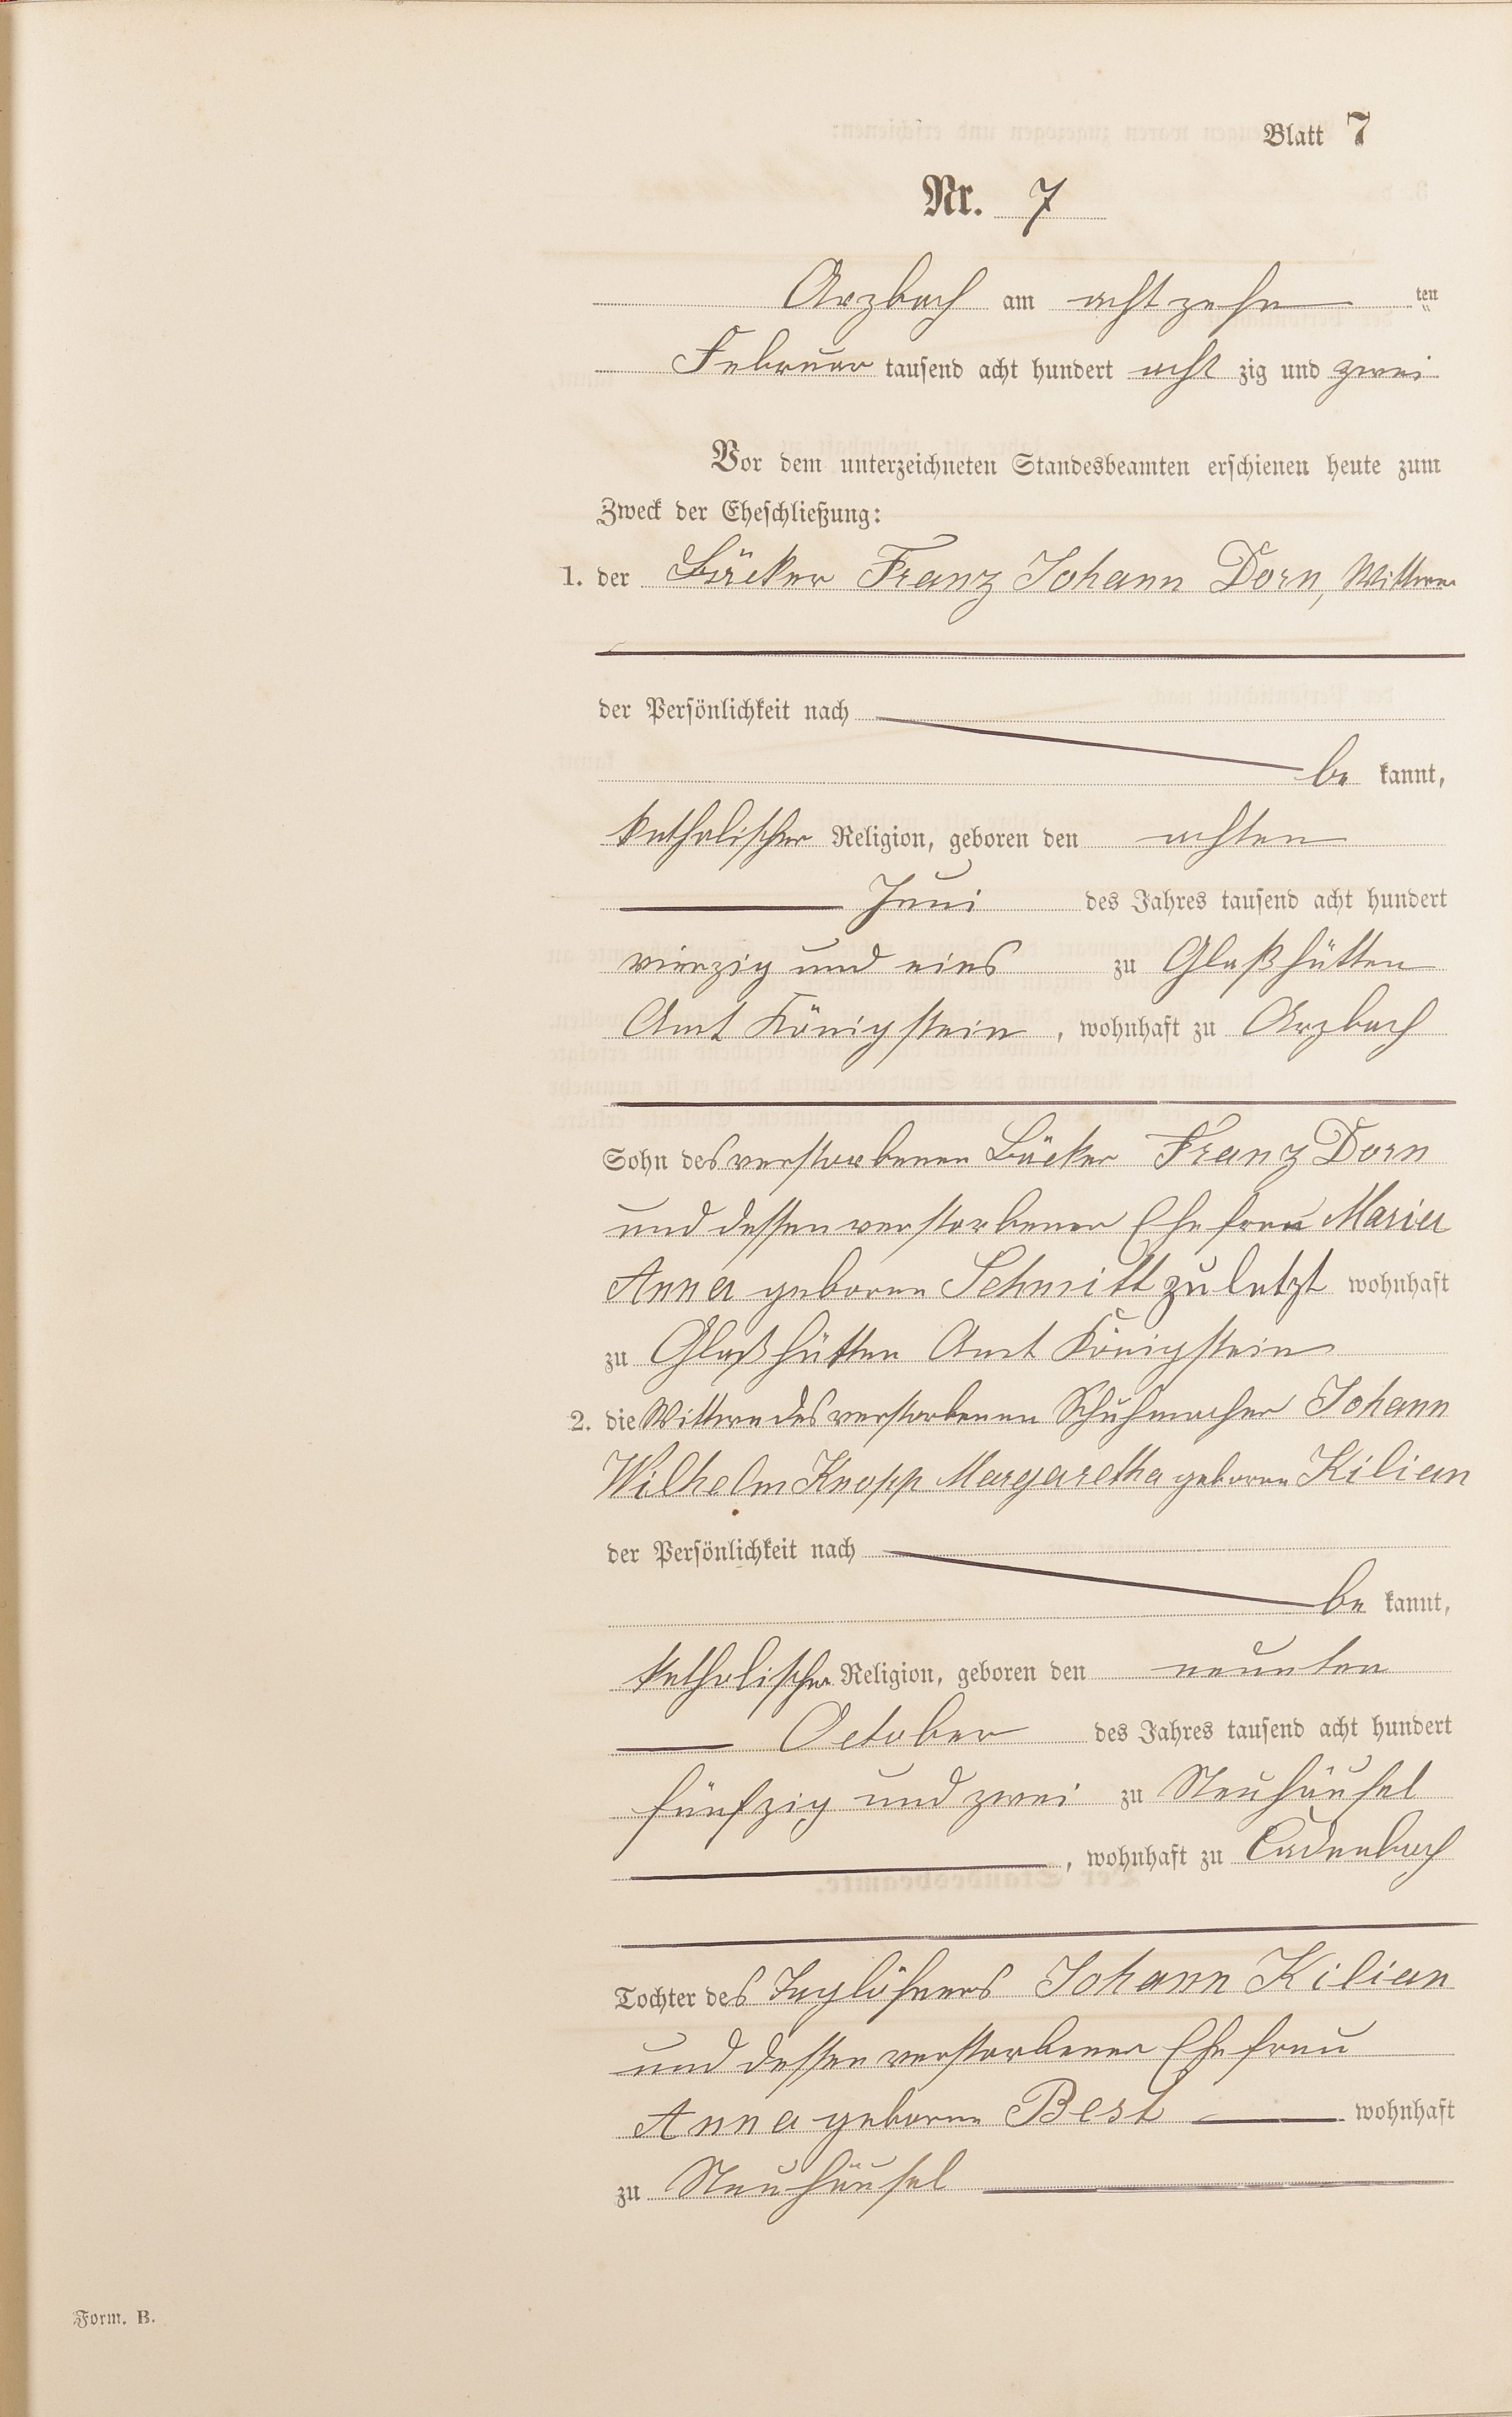 Blatt 7
Nr. 7
Arzbach am achtzehn ten
Februar tausend acht hundert acht zig und zwei
Vor dem unterzeichneten Standesbeamten erschienen heute zum
Zweck der Eheschließung:
1. der Bäcker Franz Johann Dorn, Wittwer
der Persönlichkeit nach
be kannt,
katholischer Religion, geboren den achten
Juni des Jahres tausend acht hundert
vierzig und eins zu Glaßhütten
Amt Königstein, wohnhaft zu Arzbach
Sohn des verstorbenen Bäcker Franz Dorn
und dessen verstorbener Ehefrau Maria
Anna geborne Schmitt zuletzt wohnhaft
zu Glaßhütten Amt Königstein
2. die Wittwe des verstorbenen Schuhmacher Johann
Wilhelm Knopp Margaretha geborne Kilian
der Persönlichkeit nach
be kannt,
katholischer Religion, geboren den neunten
October des Jahres tausend acht hundert
fünfzig und zwei zu Neuhäusel
, wohnhaft zu Cadenbach
Tochter des Taglöhners Johann Kilian
und dessen verstorbener Ehefrau
Anna geborne Best wohnhaft
zu Neuhäusel
Form. B.